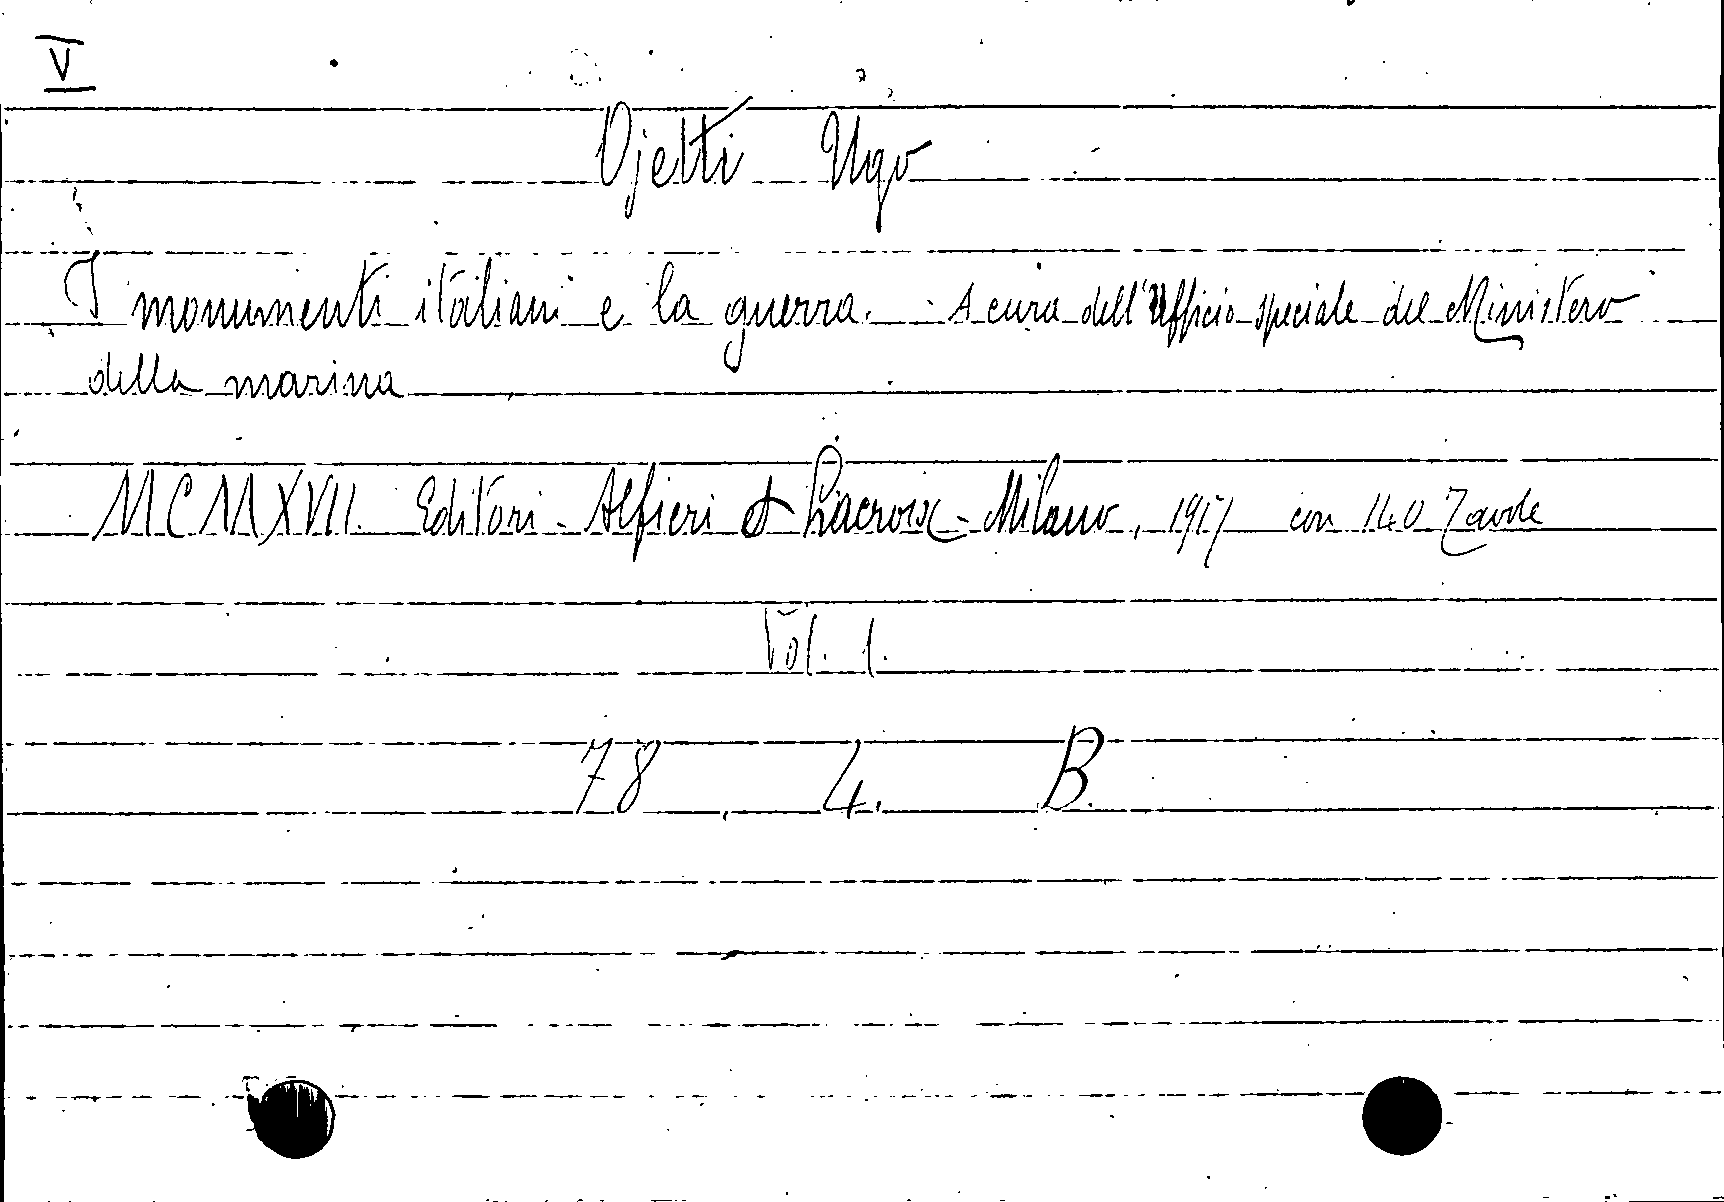 V
Ojetti Ugo
I monumenti italiani e la guerra. A cura dell'Ufficio speciale del Ministero
della marina
MCMXVII. Editori - Alfieri & Lacroix - Milano, 1917 con 140 Tavole
Vol. 1.
78 4. B.